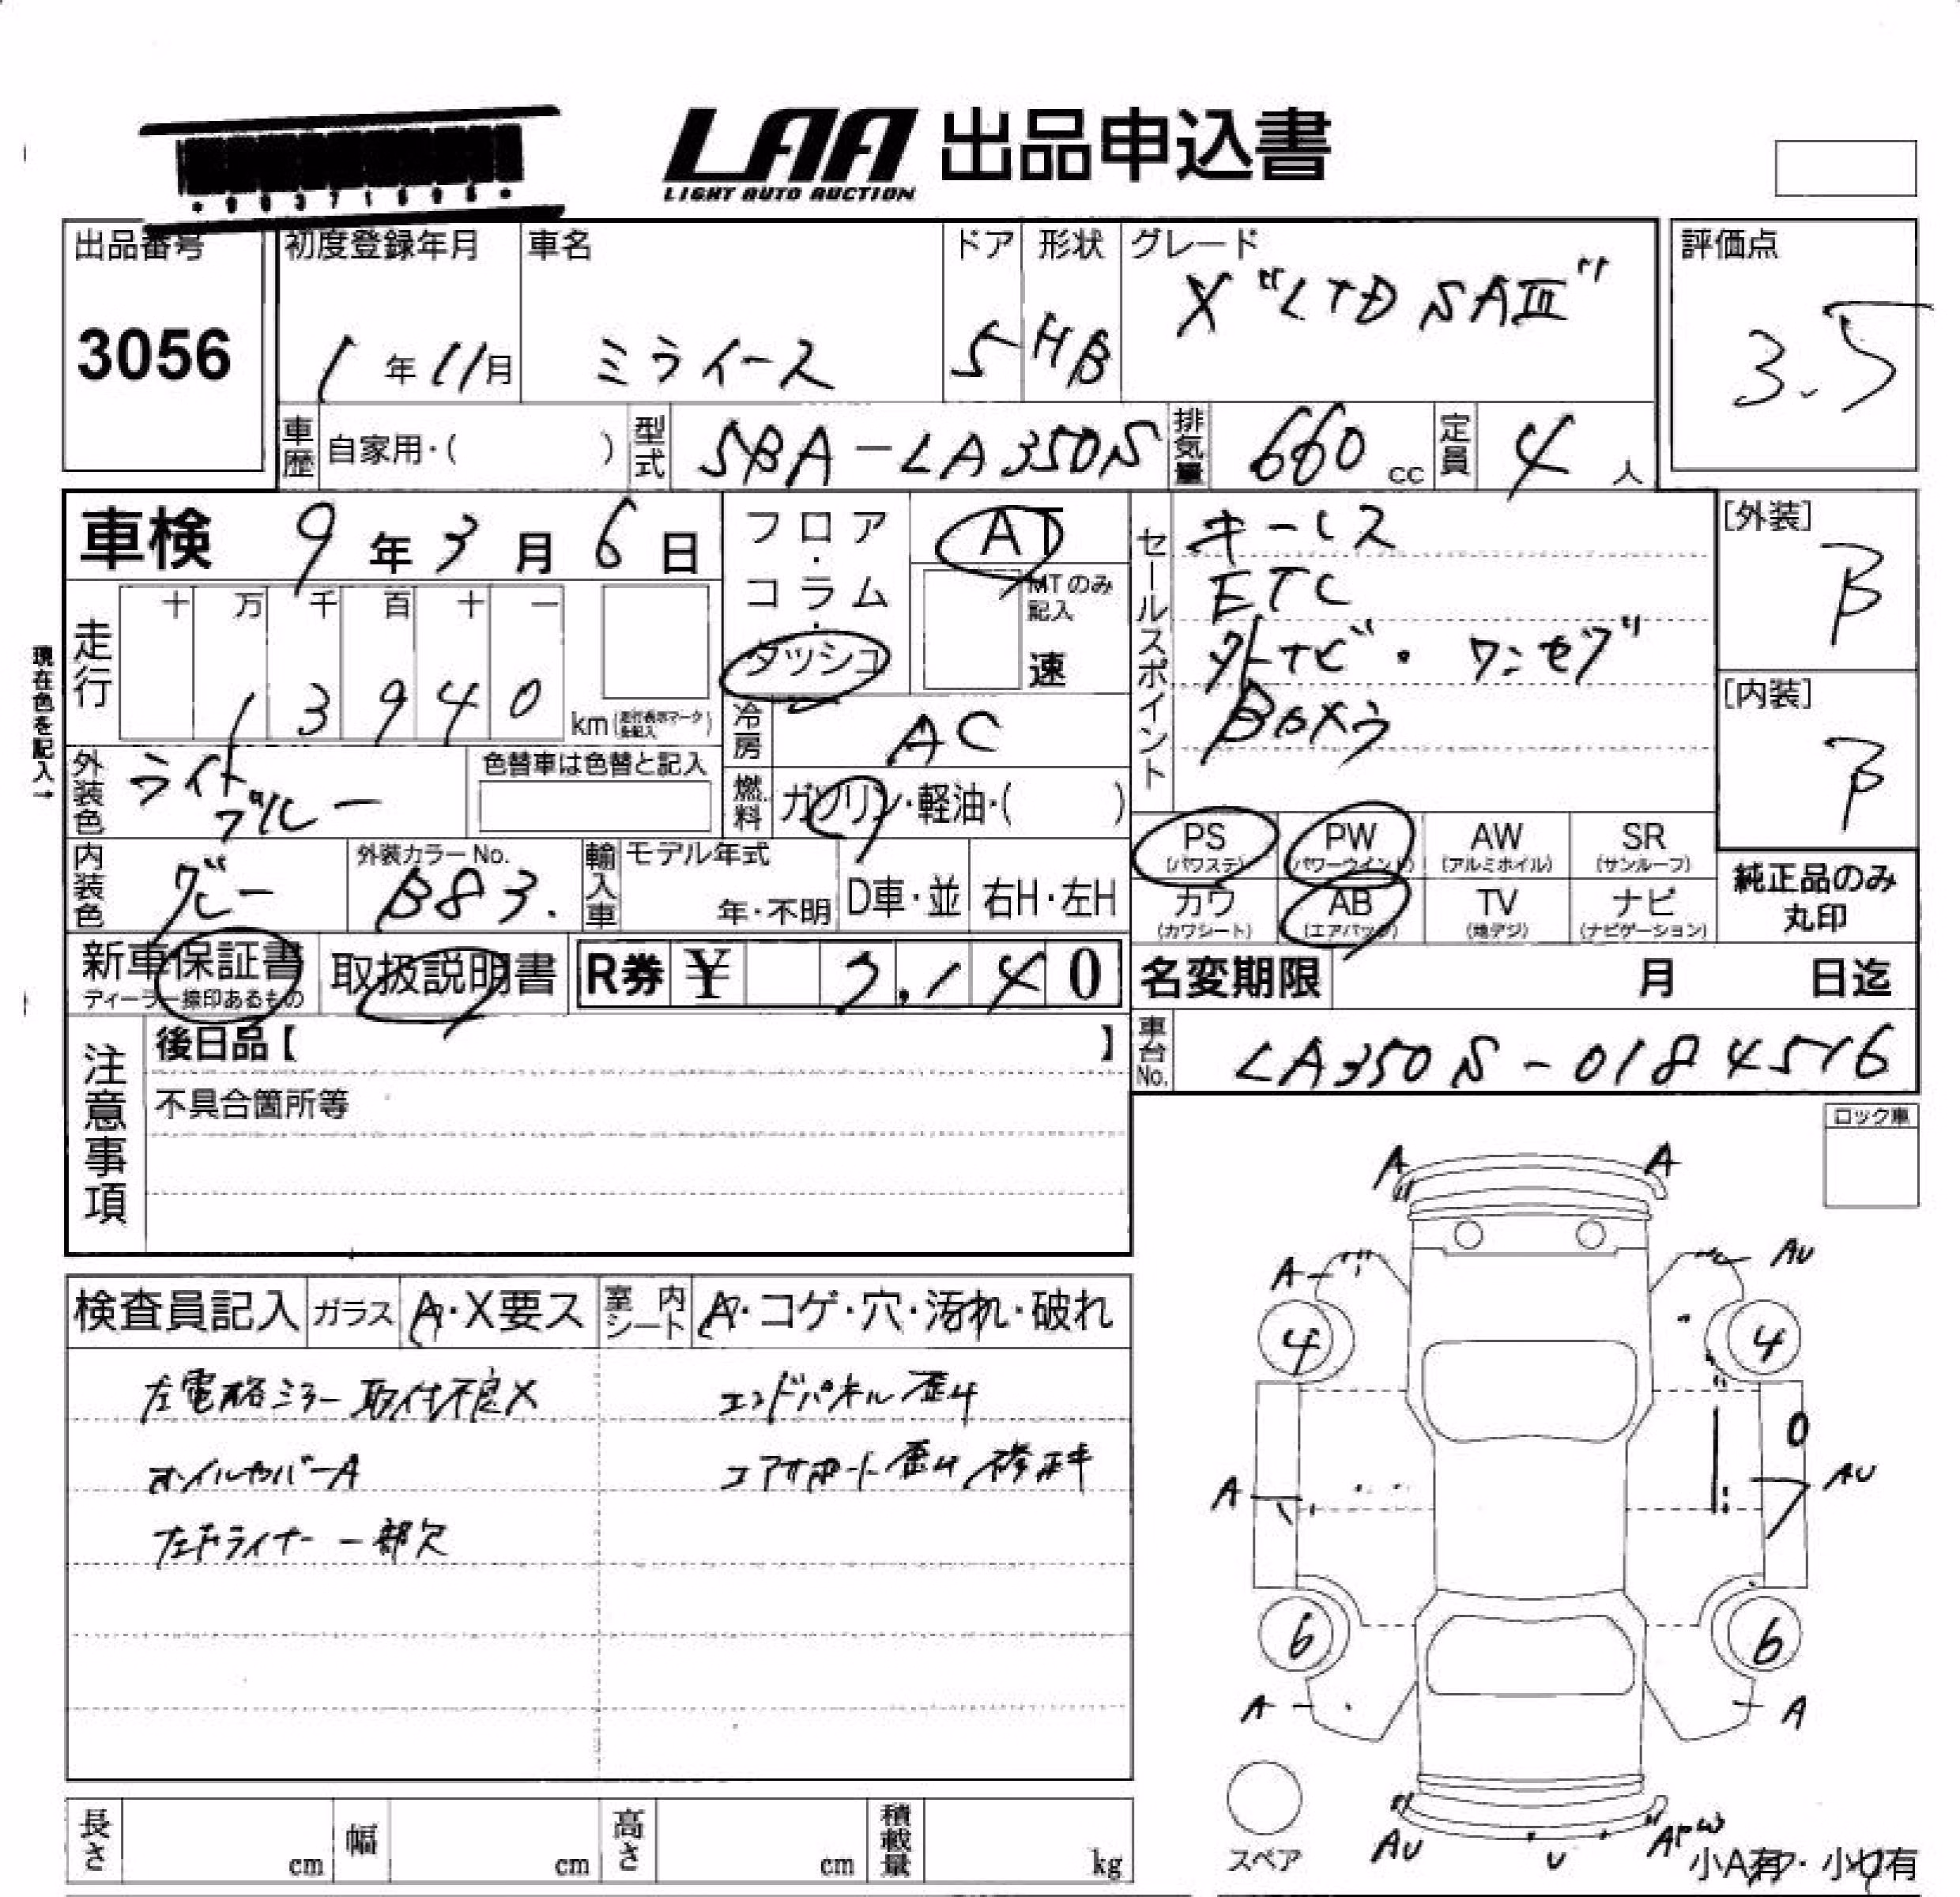 LAA 出品申込書
LIGHT AUTO AUCTION
出品番号 3056
初度登録年月 1年11月
車名 ミライース
ドア 5
形状 HB
グレード X "LTD SAⅢ"
評価点 3.5
車歴 自家用・( )
型式 5BA-LA350S
排気量 660 cc
定員 4人
車検 9年3月6日
フロア・コラム・ダッシュ
AT
MTのみ記入
速
セールスポイント
キーレス
ETC
外ナビ・ワンセグ
BOX
[外装] B
[内装] B
走行 十 万 千 百 十 一
13940 km
現在色を記入→
冷房 AC
外装色 ライトブルー
色替車は色替と記入
燃料 ガソリン・軽油・( )
内装色 グレー
外装カラーNo. B83.
輸入車 モデル年式 年・不明 D車・並 右H・左H
PS (パワステ) PW (パワーウインド) AW (アルミホイル) SR (サンルーフ)
カワ (カワシート) AB (エアバッグ) TV (地デジ) ナビ (ナビゲーション)
純正品のみ丸印
新車保証書
取扱説明書
R券 ¥
名変期限 月 日迄
注意事項
後日品【 】
不具合箇所等
車台No. LA350S-0184516
ロック車
検査員記入 ガラス A・X要ス 室内シート A・コゲ・穴・汚れ・破れ
左電格ミラー取付不良X エンドパネル歪み
オイルカバーA コアサポート歪み
ライナー一部欠
A A
A AU
4 4
A AU
6 6
A A
AU U
スペア
小A有・小U有
長さ cm 幅 cm 高さ cm 積載量 kg